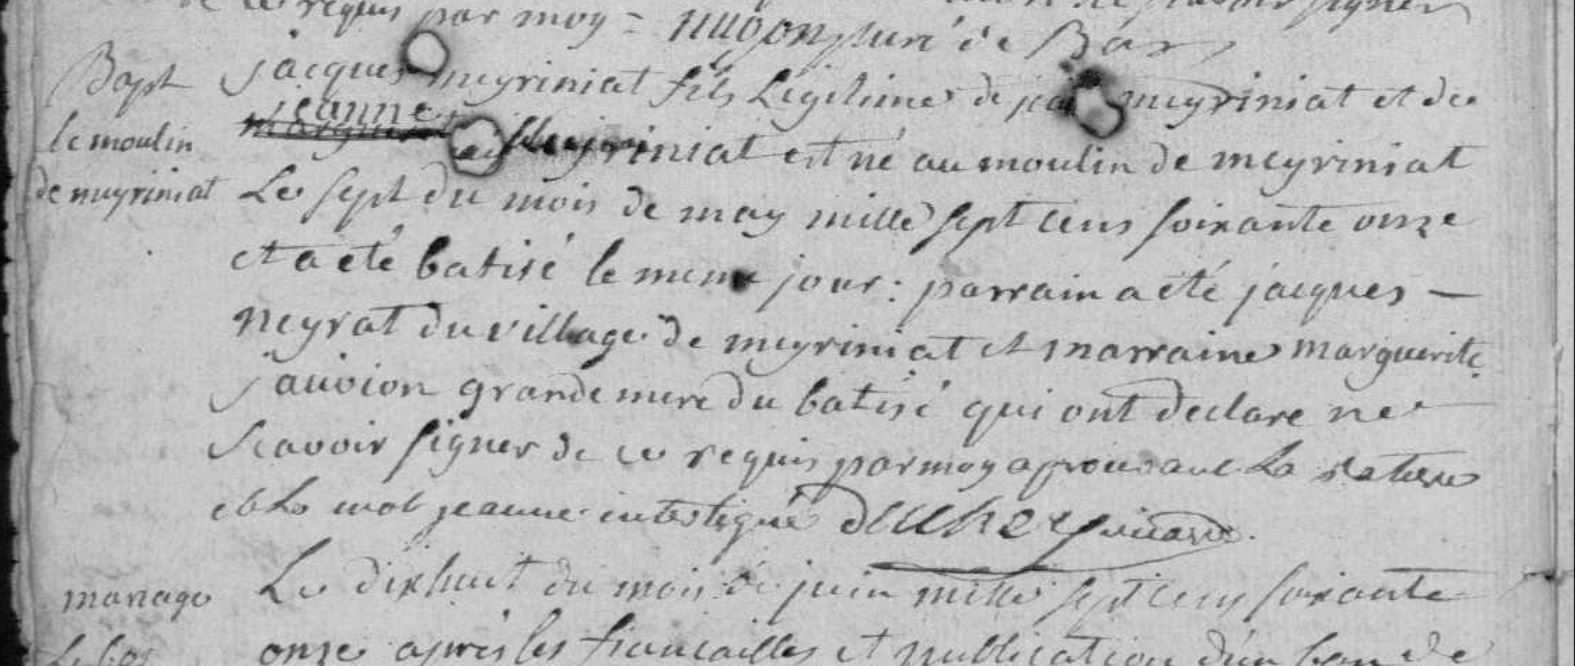 de ce requis par moy = nugon curé de Bar
Bapt
le moulin
de meyriniat
jacques meyriniat fils Légitime de meyriniat et de
jeanne
meyriniat est né au moulin de meyriniat
Le sept du mois de may mille sept cens soixante onze
et a eté batisé le meme jour : parrain a eté jacques —
neyrat du village de meyriniat et marraine marguerite
jauvion grande mere du batisé qui ont declare ne
scavoir signer de ce requis par moy aprouvant La rature
et Le mot jeanne interligné vicaire.
mariage
Le dixhuit du mois de juin mille sept cens soixante
onze après les fiancailles et publication d'un ban de